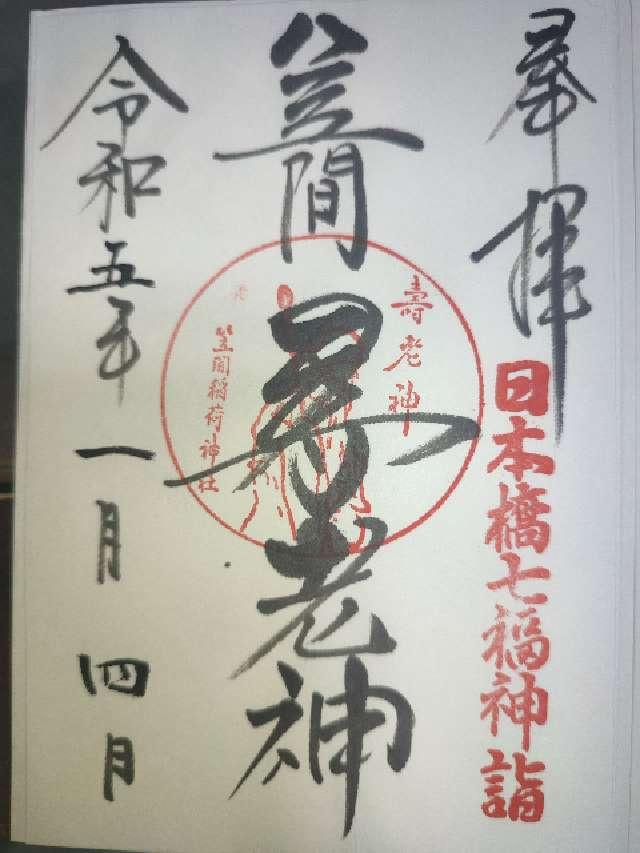 奉拝
日本橋七福神詣
笠間
寿老神
壽老神
笠間稲荷神社
令和五年一月四月